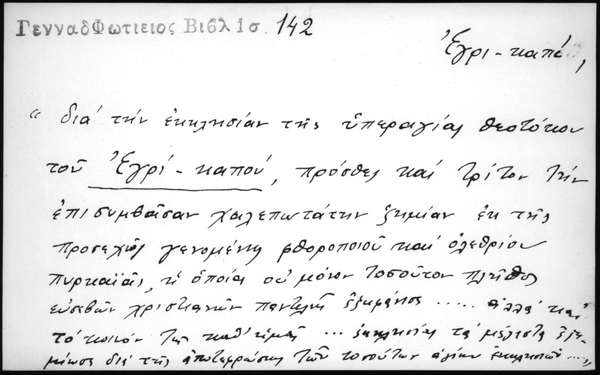 ΓενναδΦωτιειος Βιβλ 1σ. 142
Ἐγρι-καπού,
“ διά τήν ἐκκλησίαν τῆς ὑπεραγίας Θεοτόκου
τοῦ Ἐγρί-καπού, πρόσθες καί τρίτον τήν
ἐπισυμβᾶσαν χαλεπωτάτην ζημίαν ἐκ τῆς
προσεχῶς γενομένης φθοροποιοῦ καί ὀλεθρίου
πυρκαϊᾶς, ἡ ὁποία οὐ μόνον τοσοῦτον πλῆθος
εὐσεβῶν χριστιανῶν παντελῶς ἐζημίωσε ..... ἀλλά καί
τό κοινόν τῆς καθ' ἡμᾶς ... ἐκκλησίας τά μέγιστα ἐζη-
μίωσε διά τῆς ἀποτεφρώσεως τῶν τοσούτων ἁγίων ἐκκλησιῶν ....„